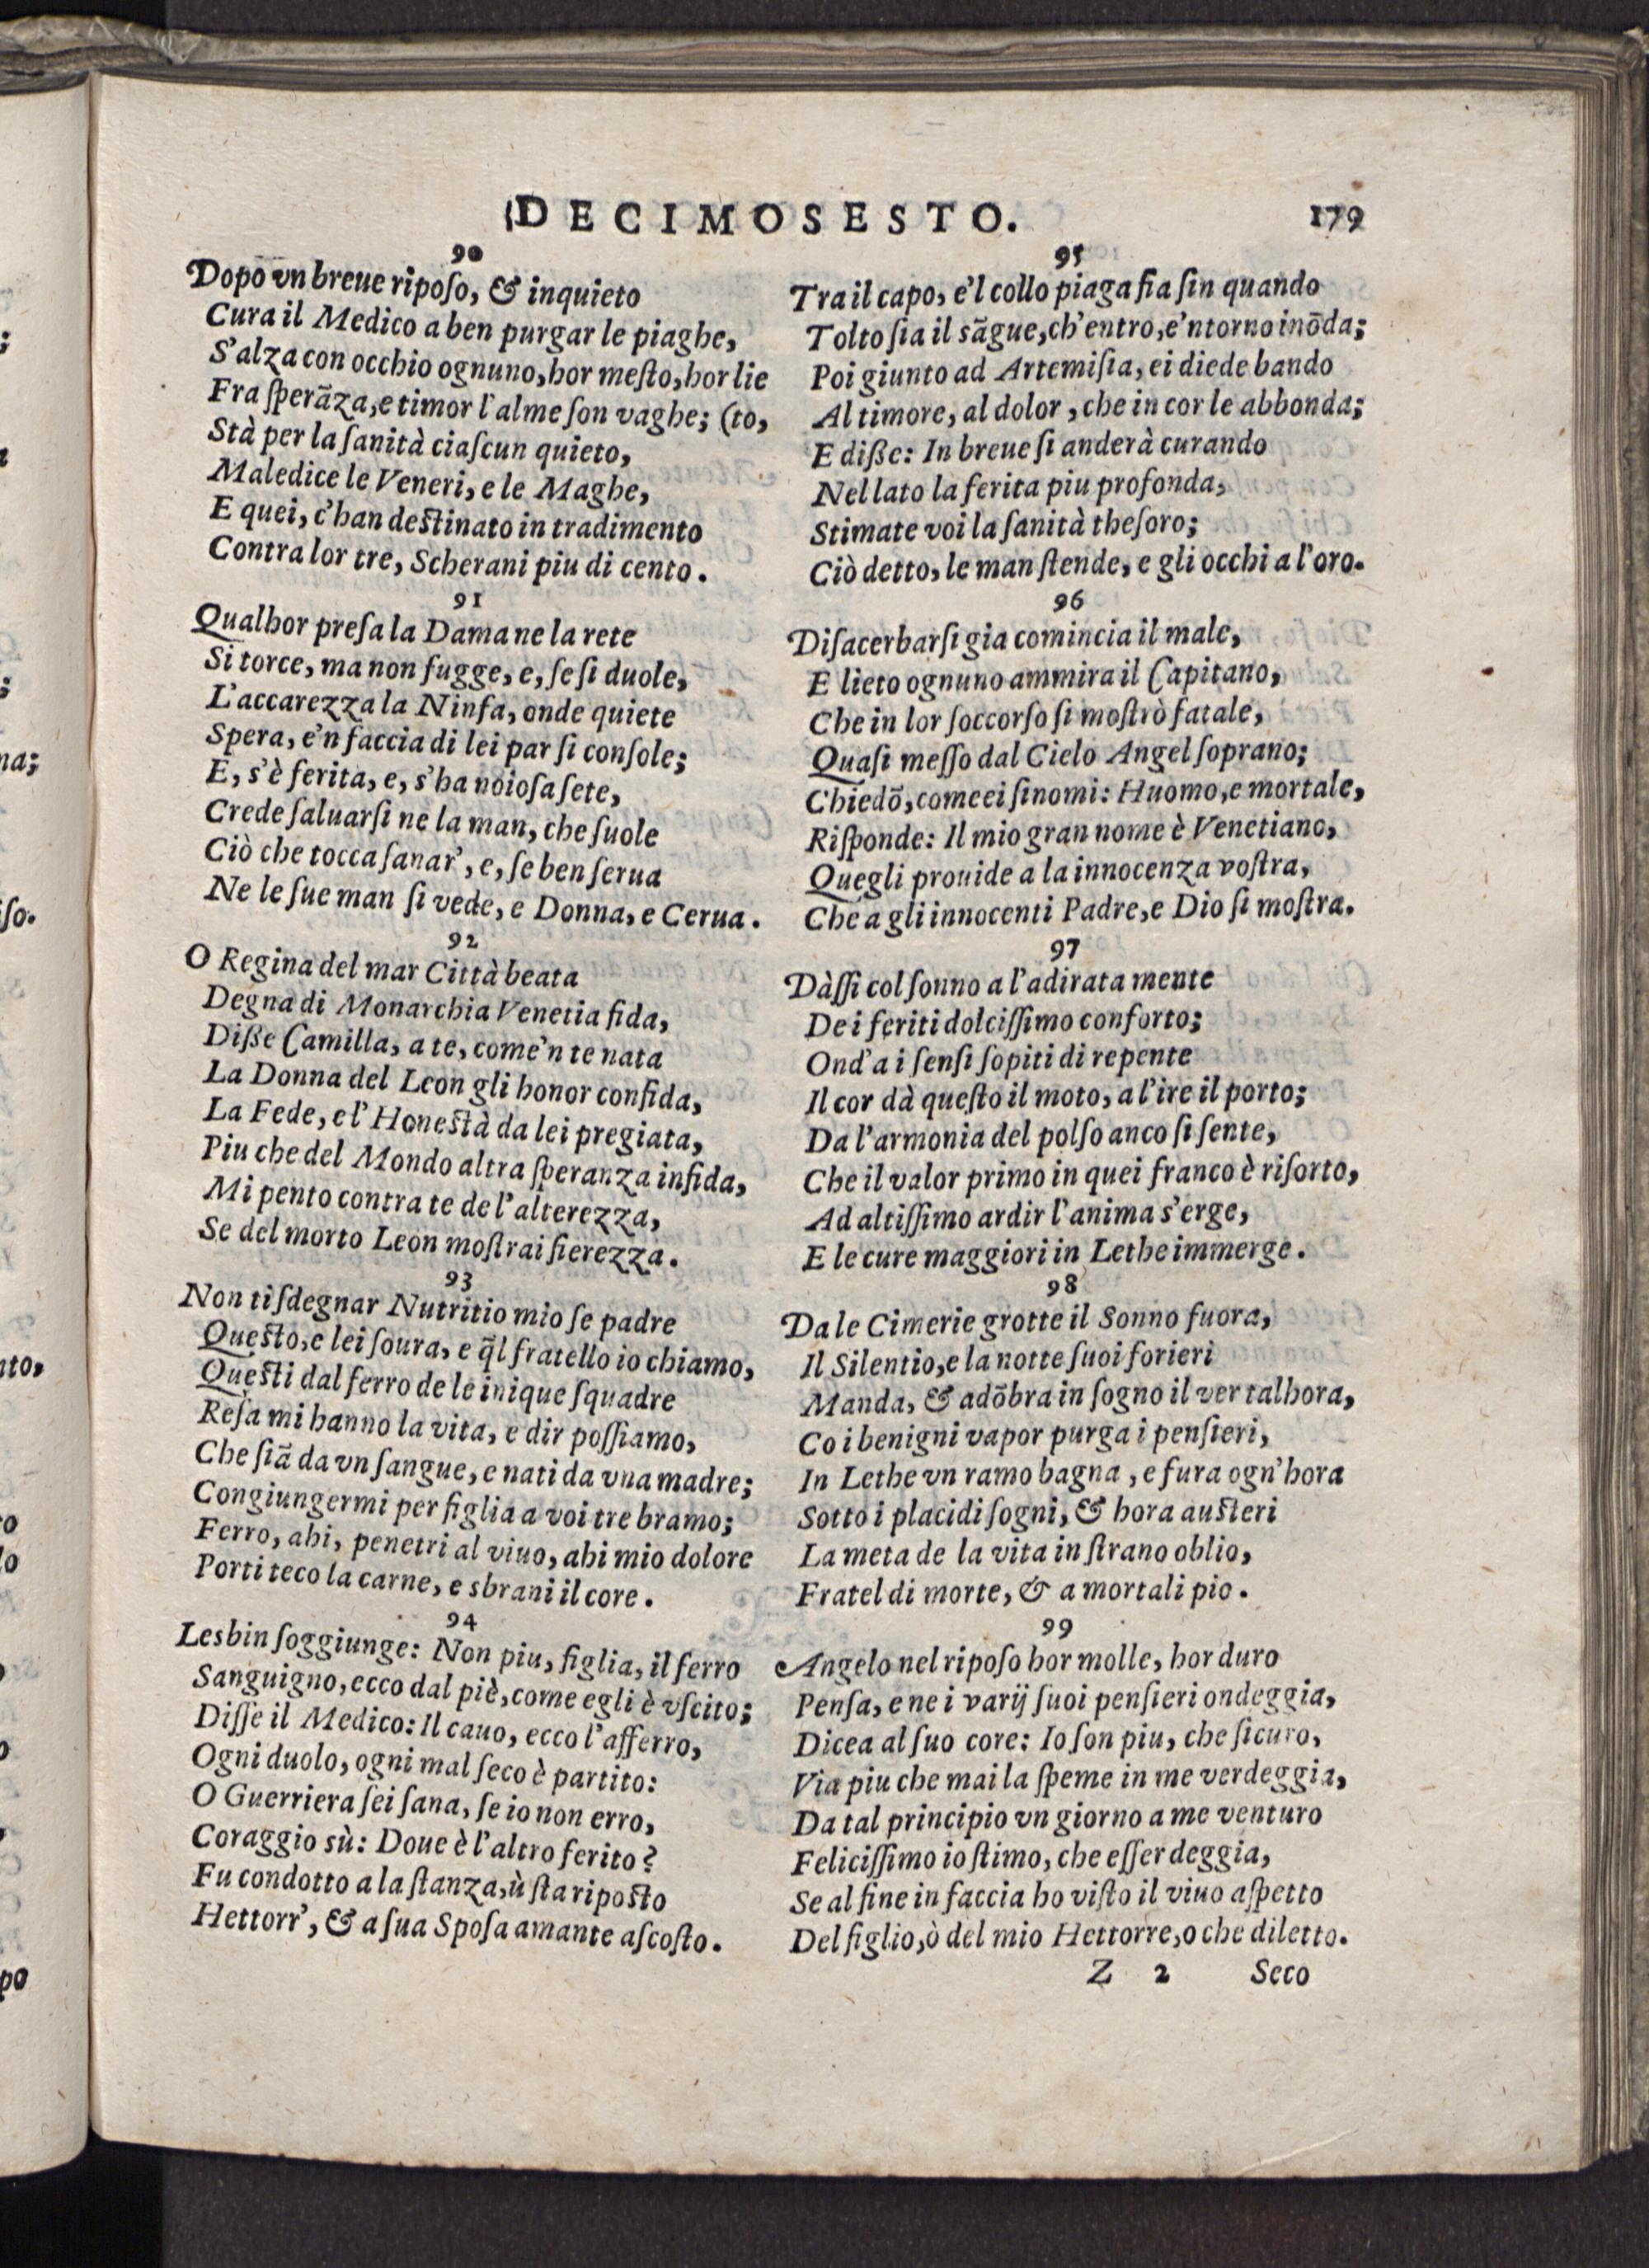 DECIMOSESTO. 179
90
Dopo vn breue ripoſo, & inquieto
Cura il Medico a ben purgar le piaghe,
S'alza con occhio ognuno, hor meſto, hor lie
Fra ſperāza, e timor l'alme ſon vaghe; (to,
Stà per la ſanità ciaſcun quieto,
Maledice le Veneri, e le Maghe,
E quei, c'han deſtinato in tradimento
Contra lor tre, Scherani piu di cento.
91
Qualhor preſa la Dama ne la rete
Si torce, ma non fugge, e, ſe ſi duole,
L'accarezza la Ninfa, onde quiete
Spera, e'n faccia di lei par ſi conſole;
E, s'è ferita, e, s'ha noioſa ſete,
Crede ſaluarſi ne la man, che ſuole
Ciò che tocca ſanar', e, ſe ben ſerua
Ne le ſue man ſi vede, e Donna, e Cerua.
92
O Regina del mar Città beata
Degna di Monarchia Venetia fida,
Diße Camilla, a te, come'n te nata
La Donna del Leon gli honor confida,
La Fede, e l'Honeſtà da lei pregiata,
Piu che del Mondo altra ſperanza infida,
Mi pento contra te de l'alterezza,
Se del morto Leon moſtrai fierezza.
93
Non ti ſdegnar Nutritio mio ſe padre
Queſto, e lei ſoura, e q̃l fratello io chiamo,
Queſti dal ferro de le inique ſquadre
Reſa mi hanno la vita, e dir poſſiamo,
Che ſiā da vn ſangue, e nati da vna madre;
Congiungermi per figlia a voi tre bramo;
Ferro, ahi, penetri al viuo, ahi mio dolore
Porti teco la carne, e sbrani il core.
94
Lesbin ſoggiunge: Non piu, figlia, il ferro
Sanguigno, ecco dal piè, come egli è vſcito;
Diſſe il Medico: Il cauo, ecco l'afferro,
Ogni duolo, ogni mal ſeco è partito:
O Guerriera ſei ſana, ſe io non erro,
Coraggio sù: Doue è l'altro ferito?
Fu condotto a la ſtanza, ù ſta ripoſto
Hettorr', & a ſua Spoſa amante aſcoſto.
95
Tra il capo, e'l collo piaga fia ſin quando
Tolto ſia il sāgue, ch'entro, e'ntorno inōda;
Poi giunto ad Artemiſia, ei diede bando
Al timore, al dolor, che in cor le abbonda;
E diße: In breue ſi anderà curando
Nel lato la ferita piu profonda,
Stimate voi la ſanità theſoro;
Ciò detto, le man ſtende, e gli occhi a l'oro.
96
Diſacerbarſi gia comincia il male,
E lieto ognuno ammira il Capitano,
Che in lor ſoccorſo ſi moſtrò fatale,
Quaſi meſſo dal Cielo Angel ſoprano;
Chiedō, come ei ſi nomi: Huomo, e mortale,
Riſponde: Il mio gran nome è Venetiano,
Quegli prouide a la innocenza voſtra,
Che a gli innocenti Padre, e Dio ſi moſtra.
97
Dàſſi col ſonno a l'adirata mente
De i feriti dolciſſimo conforto;
Ond'a i ſenſi ſopiti di repente
Il cor dà queſto il moto, a l'ire il porto;
Da l'armonia del polſo anco ſi ſente,
Che il valor primo in quei franco è riſorto,
Ad altiſſimo ardir l'anima s'erge,
E le cure maggiori in Lethe immerge.
98
Da le Cimerie grotte il Sonno fuora,
Il Silentio, e la notte ſuoi forieri
Manda, & adōbra in ſogno il ver talhora,
Co i benigni vapor purga i penſieri,
In Lethe vn ramo bagna, e fura ogn'hora
Sotto i placidi ſogni, & hora auſteri
La meta de la vita in ſtrano oblio,
Fratel di morte, & a mortali pio.
99
Angelo nel ripoſo hor molle, hor duro
Penſa, e ne i varij ſuoi penſieri ondeggia,
Dicea al ſuo core: Io ſon piu, che ſicuro,
Via piu che mai la ſpeme in me verdeggia,
Da tal principio vn giorno a me venturo
Feliciſſimo io ſtimo, che eſſer deggia,
Se al fine in faccia ho viſto il viuo aſpetto
Del figlio, ò del mio Hettorre, o che diletto.
Z 2 Seco